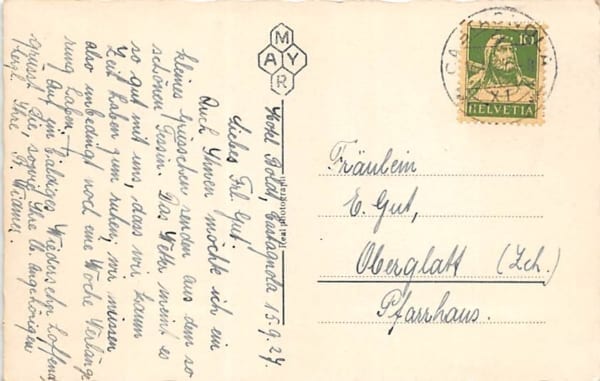 Hotel Boldt, Castagnola 15.9.27.
Liebes Frl. Gut.
Auch Ihnen möchte ich ein
kleines Grüsschen senden aus dem so
schönen Tessin. Das Wetter meint es
so gut mit uns, dass wir kaum
Zeit haben zum ruhen; wir müssen
also unbedingt noch eine Woche Verlänge
rung haben.
Auf ein baldiges Wiedersehn hoffend
grüsst Sie, sowie Ihre lb. Angehörigen
herzl. Ihre
MAYR
real photograph
CASTAGNOLA
XI
10
HELVETIA
Fräulein
E. Gut,
Oberglatt (Zch.)
Pfarrhaus.